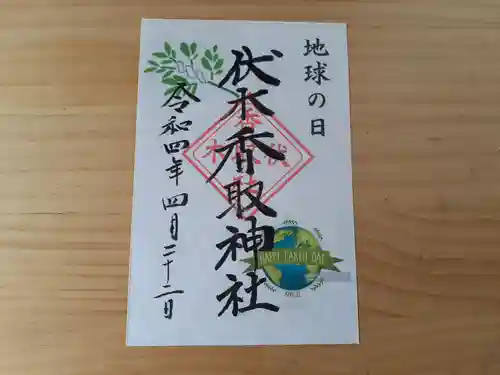 地球の日
伏木香取神社
令和四年 四月二十二日
HAPPY EARTH DAY